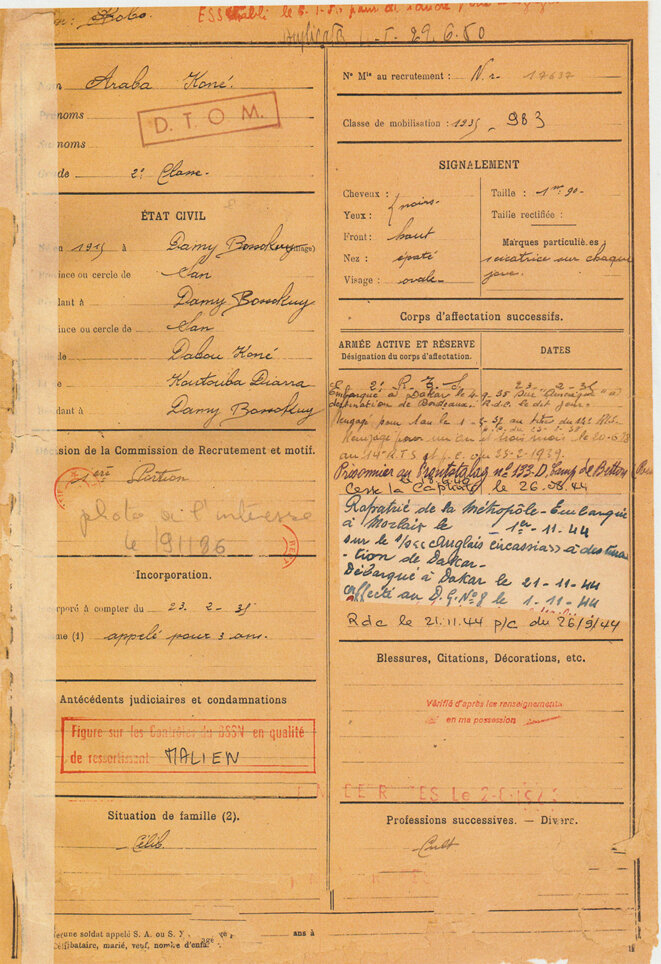 Bobo
ESS établi le
Duplicata 29.6.50
Nom Araba Koné.
Prénoms
Surnoms
D. T. O. M.
Grade 2e Classe.
ÉTAT CIVIL
Né en 1915 à Damy Bossokuy (village)
Province ou cercle de San
Résidant à Damy Bossokuy
Province ou cercle de San
Fils de Dabou Koné
Et de Koutouba Diarra
Résidant à Damy Bossokuy
Décision de la Commission de Recrutement et motif.
1ère Portion
photo à l'intéressé
le 9/1/86
Incorporation.
Incorporé à compter du 23. 2 - 35
comme (1) appelé pour 3 ans.
Antécédents judiciaires et condamnations
Figure sur les Contrôles du BSSN en qualité
de ressortissant MALIEN
Situation de famille (2).
Célib.
jeune soldat appelé S. A. ou S.
Célibataire, marié, veuf, nombre d'enfa
ans à
N° Mle au recrutement : N. r. 17637
Classe de mobilisation : 1935 - 983
SIGNALEMENT
Cheveux :
Yeux : noirs.
Front : haut
Nez : épaté
Visage : ovale
Taille : 1m 90
Taille rectifiée :
Marques particulières
scicatrice sur chaque
joue.
Corps d'affectation successifs.
ARMÉE ACTIVE ET RÉSERVE
Désignation du corps d'affectation.
DATES
2e R. T. S. 23 - 2 - 35
Embarqué à Dakar le 4-9-38 sur à
destination de Bordeaux. R.d.c. le dit jour.
Rengagé pour 1 an le
Rengagé pour un an et trois mois le
au 14e R T S
Prisonnier au Frontstalag n° 153. D. Camp de
Cesse la Captivité le 26.08.44
Rapatrié de la Métropole - Embarqué
à Morlaix le 1er 11-44
sur le s/s « Anglais circassia » à destina
-tion de Dakar -
Débarqué à Dakar le 21-11-44
affecté au D.G. N° 8 le 1-11-44
Rdc le 21.11.44 p/c du 26/9/44
Blessures, Citations, Décorations, etc.
Vérifié d'après les renseignements
en ma possession
ES Le 2-8-197
Professions successives. — Divers.
Cult